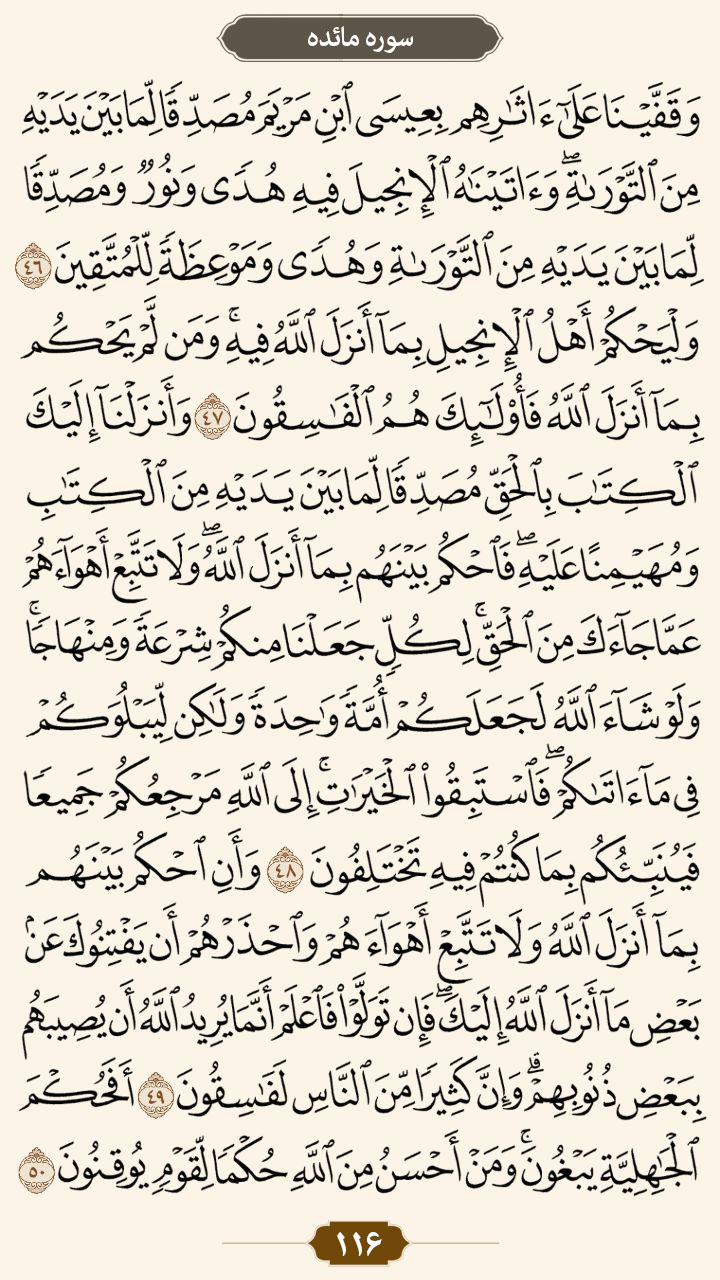 سوره مائده
وَقَفَّيْنَا عَلَىٰٓ ءَاثَٰرِهِم بِعِيسَى ٱبْنِ مَرْيَمَ مُصَدِّقًا لِّمَا بَيْنَ يَدَيْهِ
مِنَ ٱلتَّوْرَىٰةِ ۖ وَءَاتَيْنَٰهُ ٱلْإِنجِيلَ فِيهِ هُدًى وَنُورٌ وَمُصَدِّقًا
لِّمَا بَيْنَ يَدَيْهِ مِنَ ٱلتَّوْرَىٰةِ وَهُدًى وَمَوْعِظَةً لِّلْمُتَّقِينَ ٤٦
وَلْيَحْكُمْ أَهْلُ ٱلْإِنجِيلِ بِمَآ أَنزَلَ ٱللَّهُ فِيهِ ۚ وَمَن لَّمْ يَحْكُم
بِمَآ أَنزَلَ ٱللَّهُ فَأُو۟لَٰٓئِكَ هُمُ ٱلْفَٰسِقُونَ ٤٧ وَأَنزَلْنَآ إِلَيْكَ
ٱلْكِتَٰبَ بِٱلْحَقِّ مُصَدِّقًا لِّمَا بَيْنَ يَدَيْهِ مِنَ ٱلْكِتَٰبِ
وَمُهَيْمِنًا عَلَيْهِ ۖ فَٱحْكُم بَيْنَهُم بِمَآ أَنزَلَ ٱللَّهُ ۖ وَلَا تَتَّبِعْ أَهْوَآءَهُمْ
عَمَّا جَآءَكَ مِنَ ٱلْحَقِّ ۚ لِكُلٍّ جَعَلْنَا مِنكُمْ شِرْعَةً وَمِنْهَاجًا ۚ
وَلَوْ شَآءَ ٱللَّهُ لَجَعَلَكُمْ أُمَّةً وَٰحِدَةً وَلَٰكِن لِّيَبْلُوَكُمْ
فِى مَآ ءَاتَىٰكُمْ ۖ فَٱسْتَبِقُوا۟ ٱلْخَيْرَٰتِ ۚ إِلَى ٱللَّهِ مَرْجِعُكُمْ جَمِيعًا
فَيُنَبِّئُكُم بِمَا كُنتُمْ فِيهِ تَخْتَلِفُونَ ٤٨ وَأَنِ ٱحْكُم بَيْنَهُم
بِمَآ أَنزَلَ ٱللَّهُ وَلَا تَتَّبِعْ أَهْوَآءَهُمْ وَٱحْذَرْهُمْ أَن يَفْتِنُوكَ عَنۢ
بَعْضِ مَآ أَنزَلَ ٱللَّهُ إِلَيْكَ ۖ فَإِن تَوَلَّوْا۟ فَٱعْلَمْ أَنَّمَا يُرِيدُ ٱللَّهُ أَن يُصِيبَهُم
بِبَعْضِ ذُنُوبِهِمْ ۗ وَإِنَّ كَثِيرًا مِّنَ ٱلنَّاسِ لَفَٰسِقُونَ ٤٩ أَفَحُكْمَ
ٱلْجَٰهِلِيَّةِ يَبْغُونَ ۚ وَمَنْ أَحْسَنُ مِنَ ٱللَّهِ حُكْمًا لِّقَوْمٍ يُوقِنُونَ ٥٠
۱۱۶